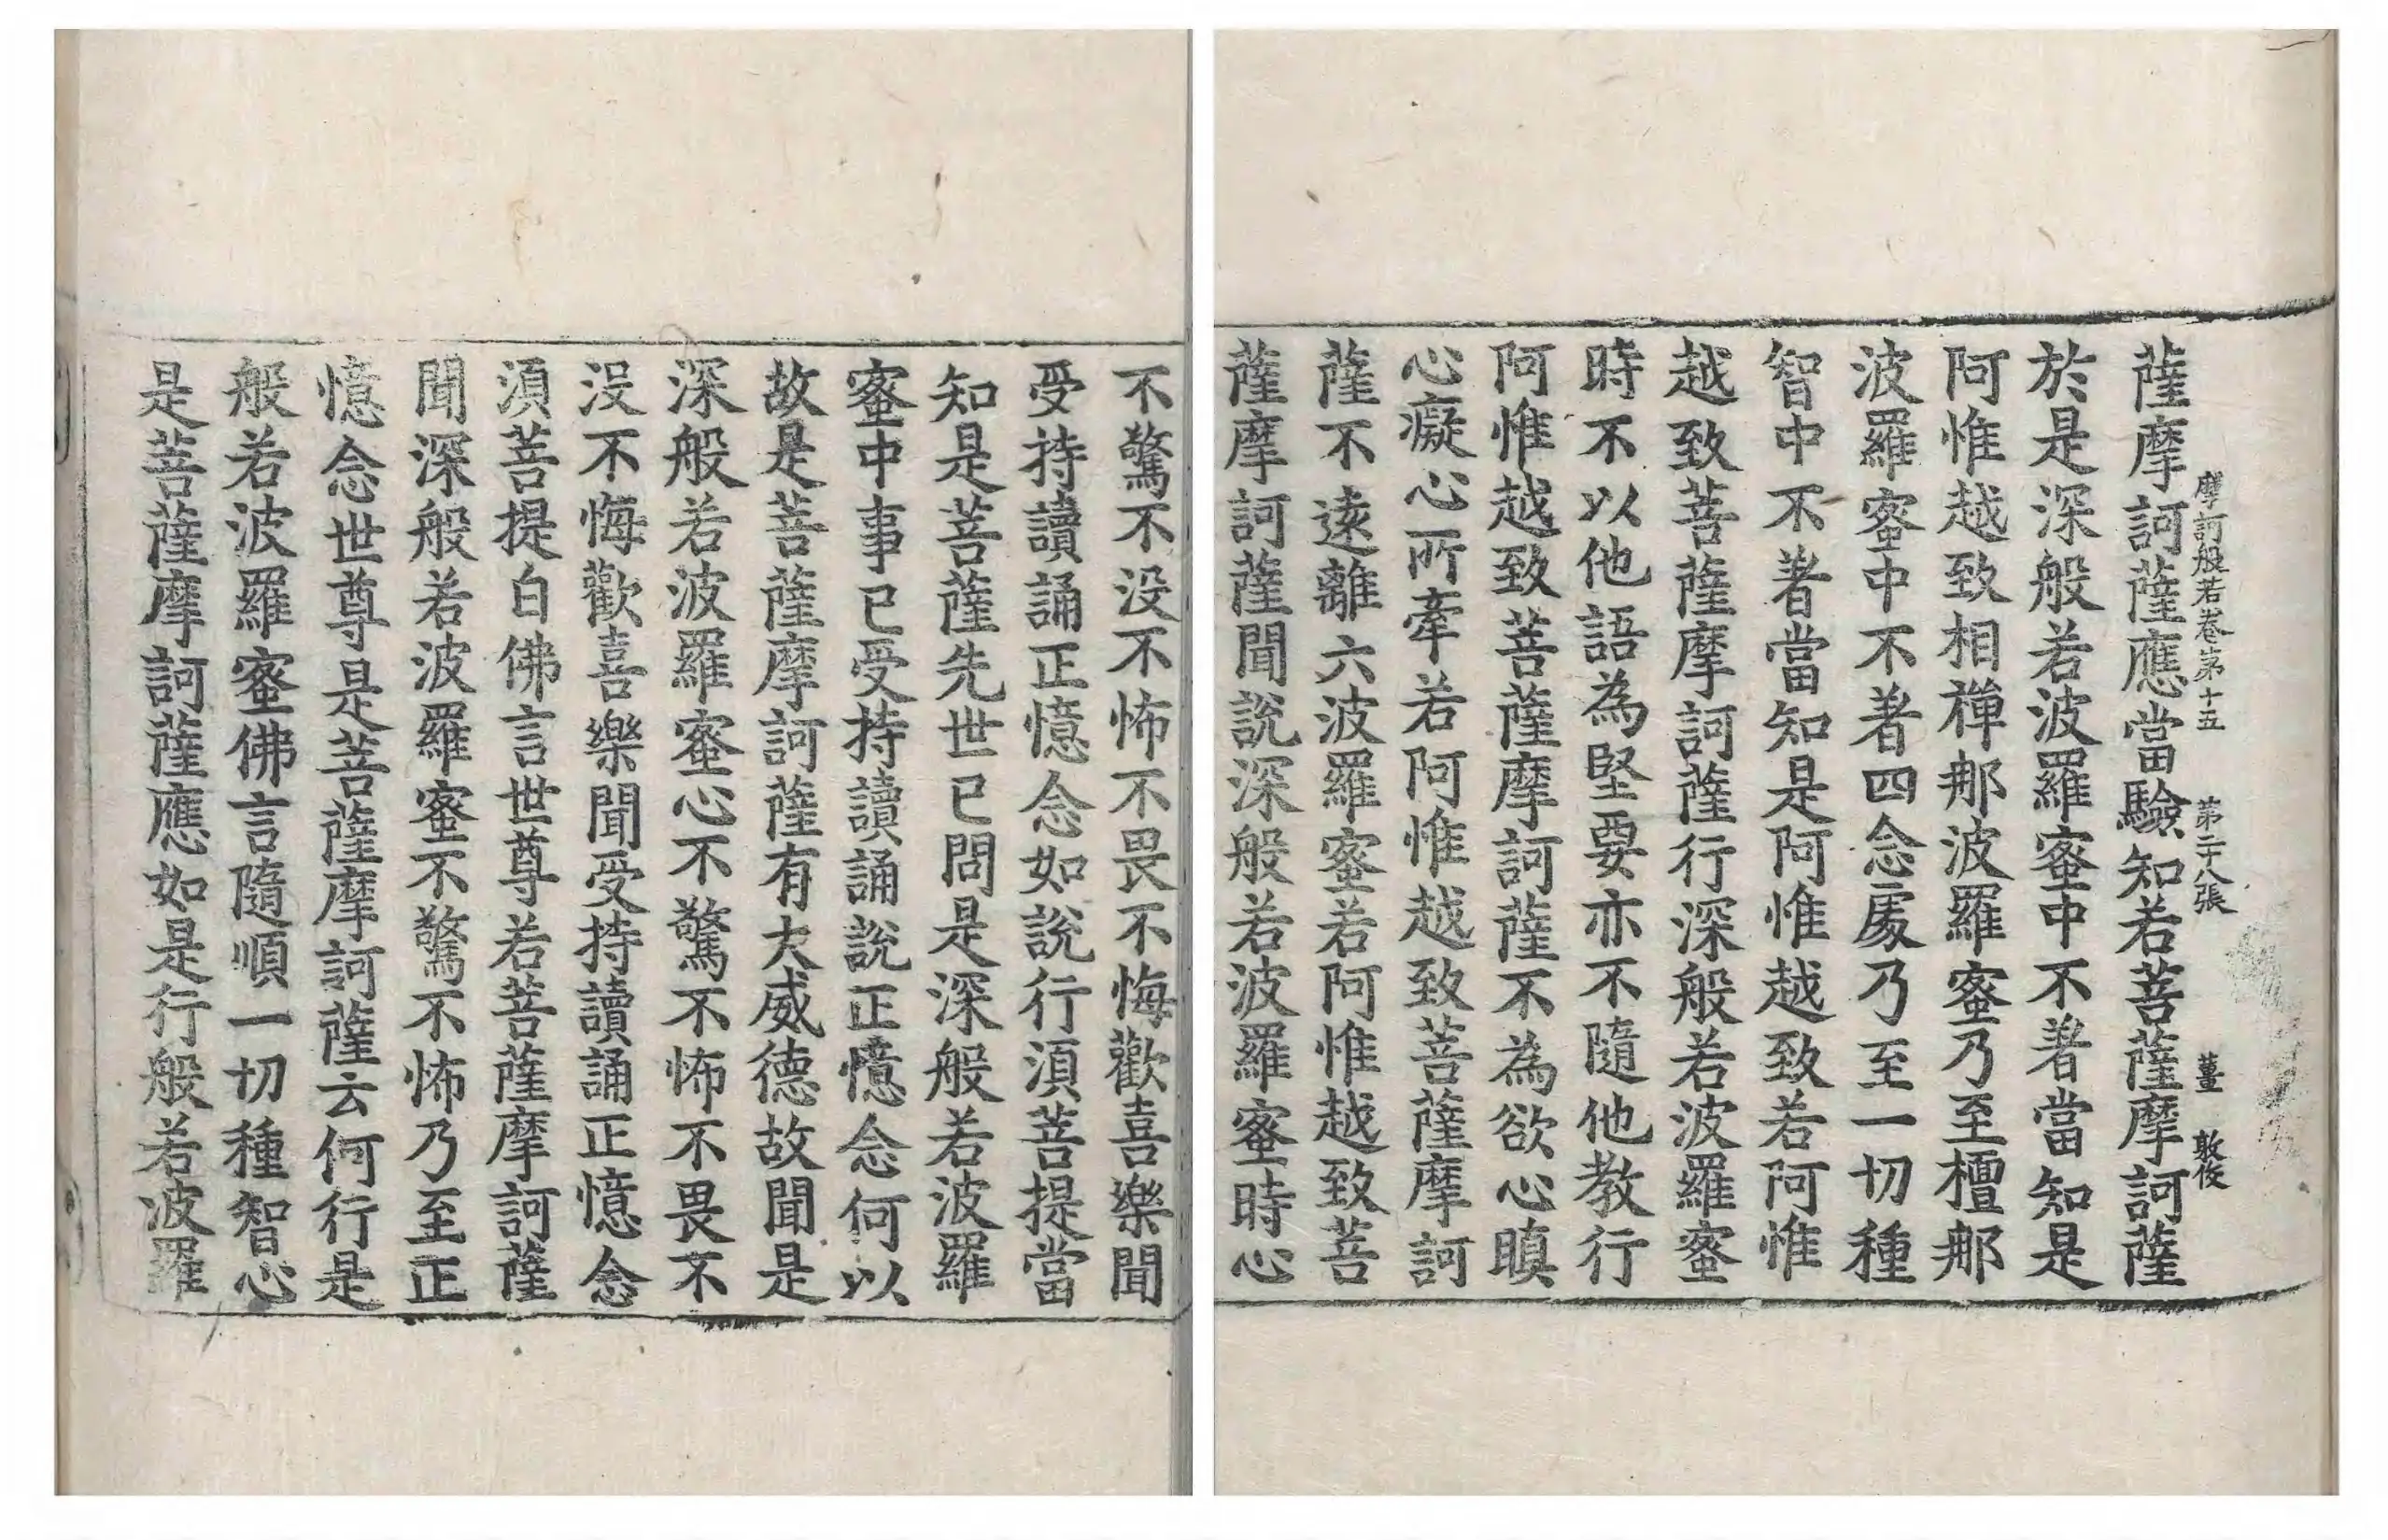 摩訶般若卷第十五 第二十八張 薑 敦俊
薩摩訶薩應當驗知若菩薩摩訶薩
於是深般若波羅蜜中不著當知是
阿惟越致相禪那波羅蜜乃至檀那
波羅蜜中不著四念處乃至一切種
智中不著當知是阿惟越致若阿惟
越致菩薩摩訶薩行深般若波羅蜜
時不以他語為堅要亦不隨他教行
阿惟越致菩薩摩訶薩不為欲心瞋
心癡心所牽若阿惟越致菩薩摩訶
薩不遠離六波羅蜜若阿惟越致菩
薩摩訶薩聞說深般若波羅蜜時心
不驚不没不怖不畏不悔歡喜樂聞
受持讀誦正憶念如說行湏菩提當
知是菩薩先世已問是深般若波羅
蜜中事已受持讀誦說正憶念何以
故是菩薩摩訶薩有大威德故聞是
深般若波羅蜜心不驚不怖不畏不
没不悔歡喜樂聞受持讀誦正憶念
湏菩提白佛言世尊若菩薩摩訶薩
聞深般若波羅蜜不驚不怖乃至正
憶念世尊是菩薩摩訶薩云何行是
般若波羅蜜佛言隨順一切種智心
是菩薩摩訶薩應如是行般若波羅